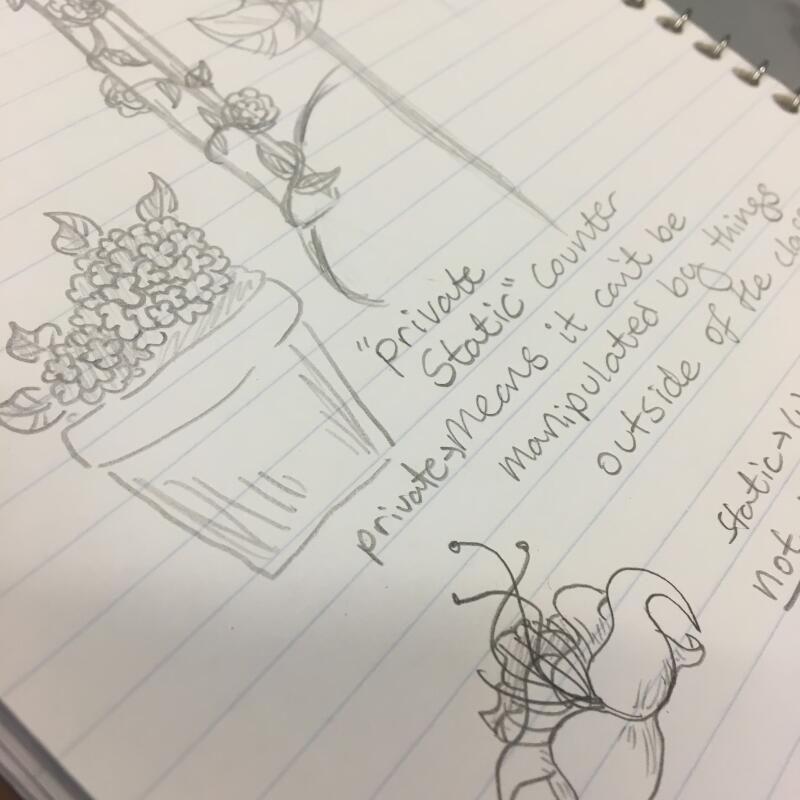 "private
Static" counter
private→means it can't be
manipulated by things
outside of the class
static→
not